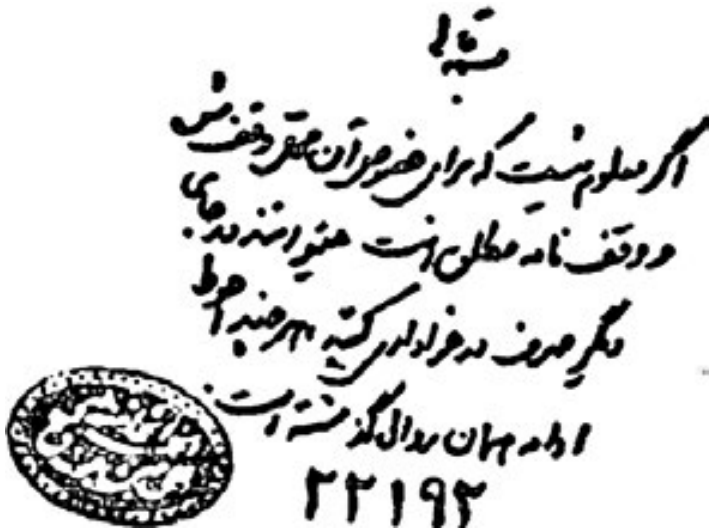 بسمه تعالی
اگر معلوم نیست که برای خصوص آن محل وقف شده
و وقف نامه مطلق است میتوانند در جای
دیگر صرف در عزاداری کنند هر چند احوط
ادامه همان روال گذشته است.
۲۲۱۹۲